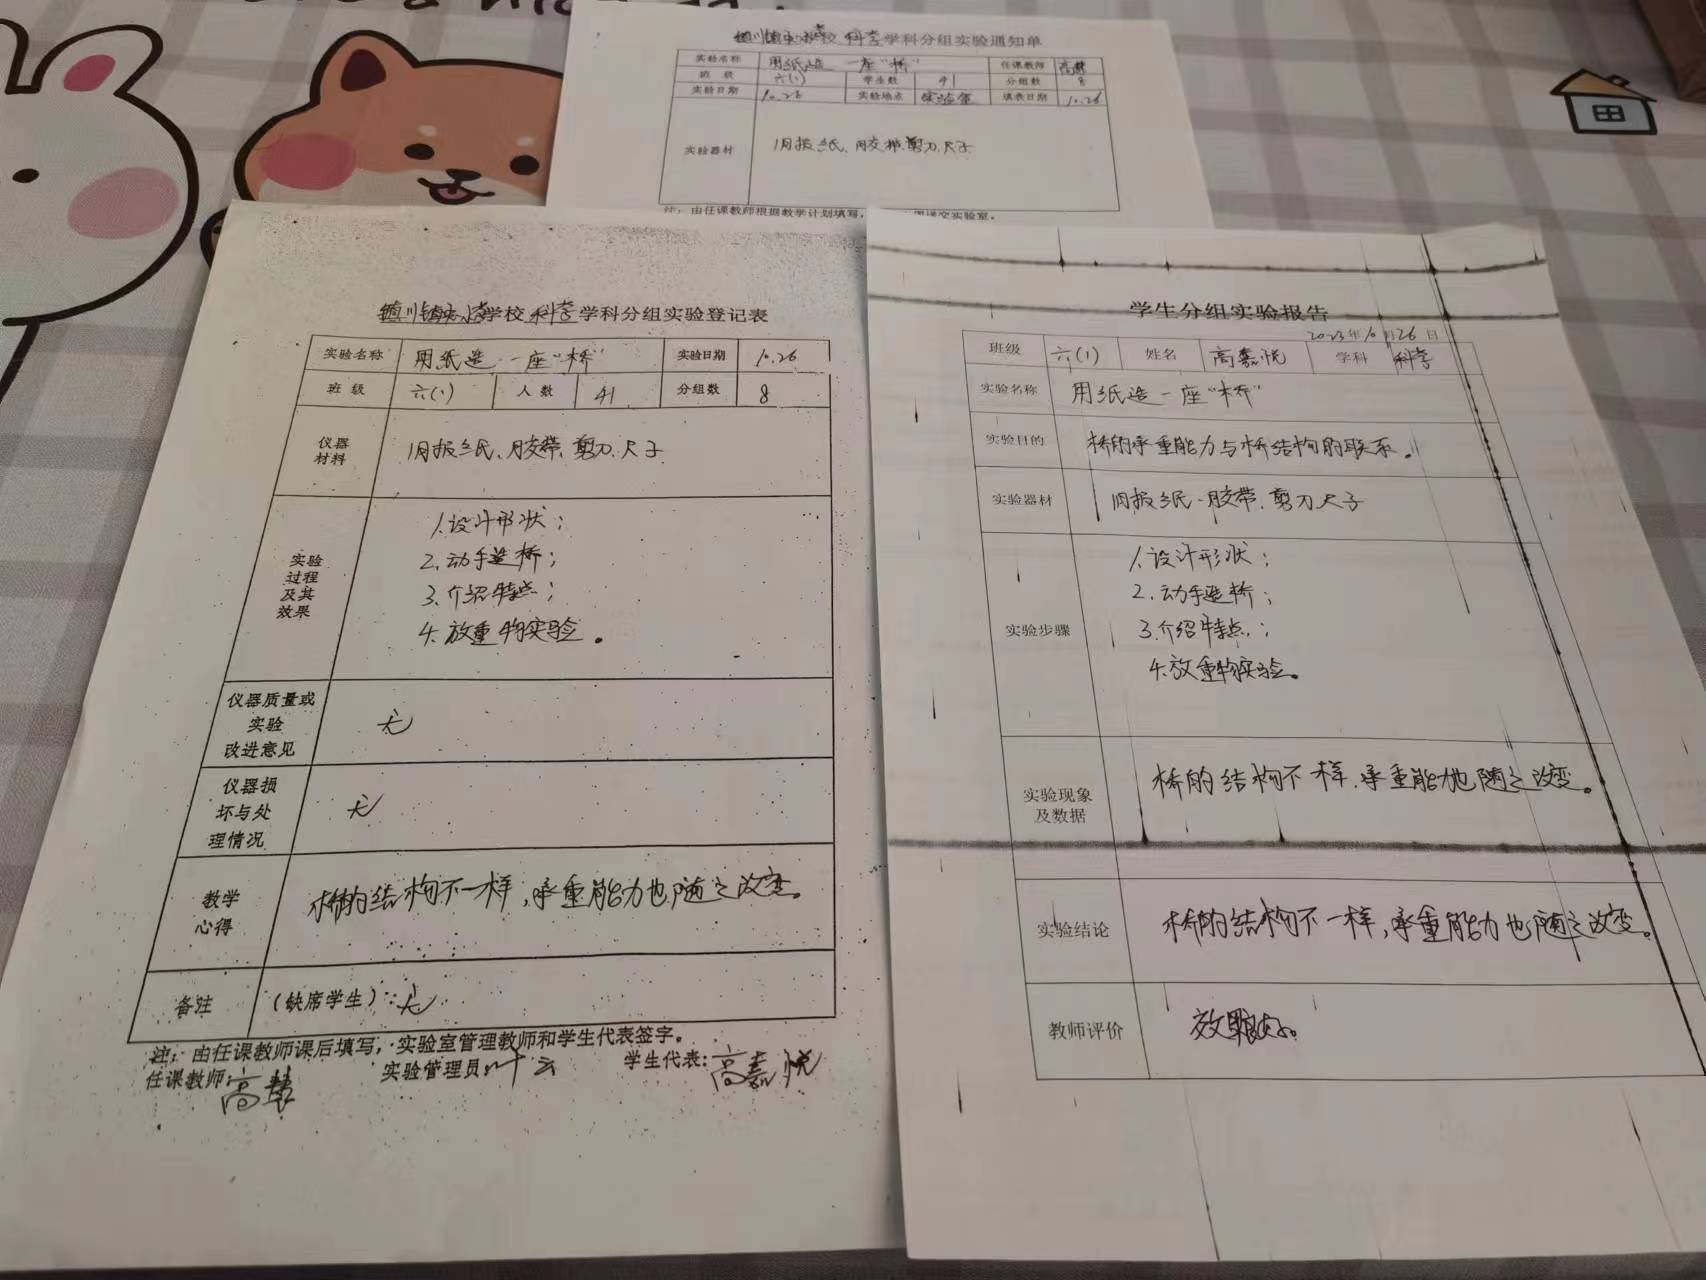 学科分组实验通知单
实验名称 用纸造一座“桥” 任课教师 高慧
班 级 六(1) 学生数 41 分组数 8
实验日期 10.26 实验地点 实验室 填表日期 10.26
实验器材 旧报纸、胶带、剪刀、尺子
注：由任课教师根据教学计划填写，
学校 科学 学科分组实验登记表
实验名称 用纸造一座“桥” 实验日期 10.26
班 级 六(1) 人 数 41 分组数 8
仪器
材料
旧报纸、胶带、剪刀、尺子
实验
过程
及其
效果
1.设计形状；
2.动手造桥；
3.介绍特点；
4.放重物实验。
仪器质量或
实验
改进意见
无
仪器损
坏与处
理情况
无
教学
心得
桥的结构不一样，承重能力也随之改变。
备注 （缺席学生）：无
注：由任课教师课后填写，实验室管理教师和学生代表签字。
任课教师：高慧 实验管理员：叶云 学生代表：高嘉悦
学生分组实验报告
2023年10月26日
班级 六(1) 姓名 高嘉悦 学科 科学
实验名称 用纸造一座“桥”
实验目的 桥的承重能力与桥结构的联系。
实验器材 旧报纸、胶带、剪刀、尺子
实验步骤
1.设计形状；
2.动手造桥；
3.介绍特点；
4.放重物实验。
实验现象
及数据
桥的结构不一样，承重能力也随之改变。
实验结论 桥的结构不一样，承重能力也随之改变。
教师评价